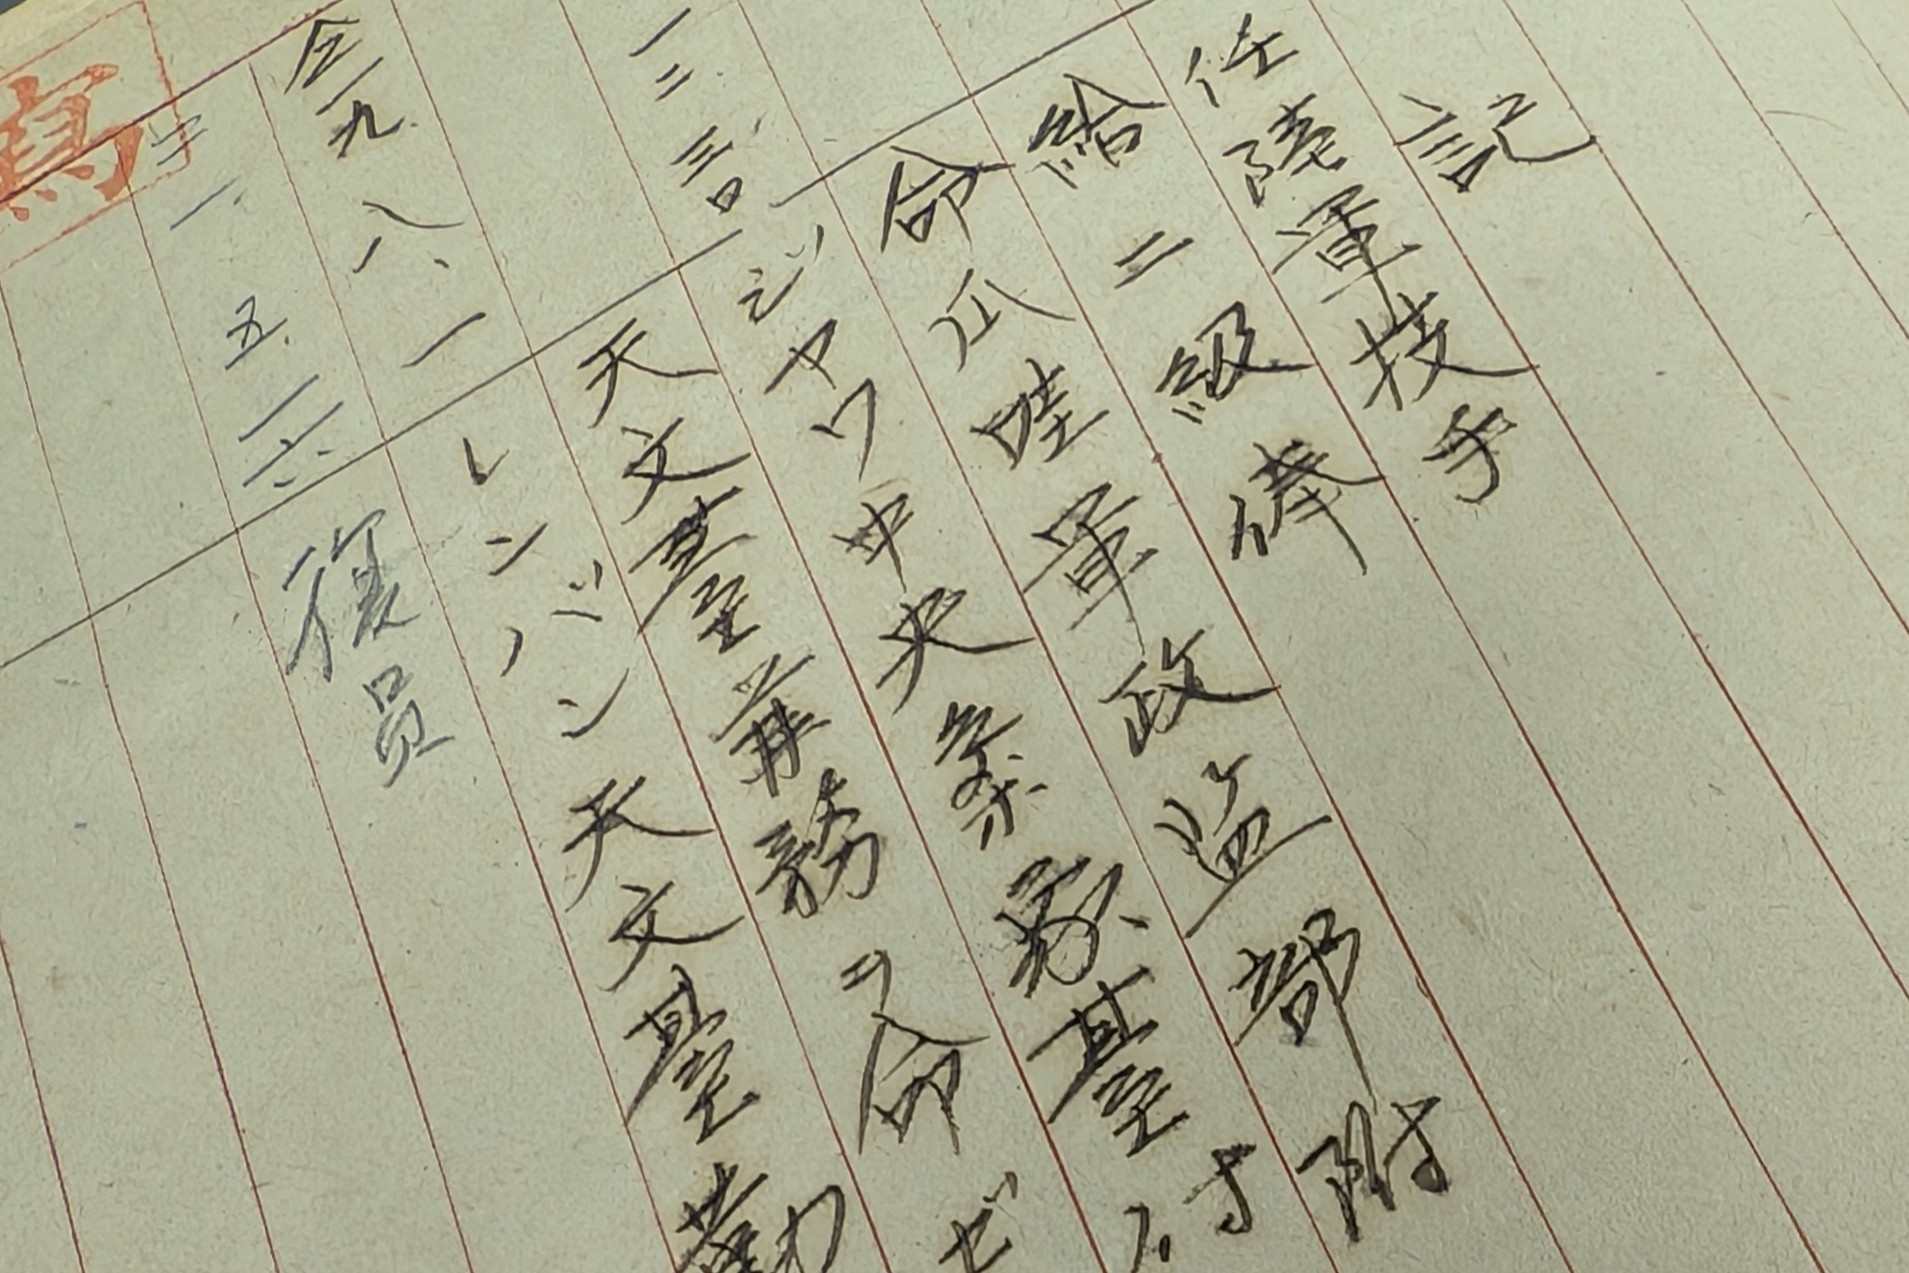 記
任陸軍技手
給二級俸
命爪哇軍政監部附
一二、三〇 ジヤワ中央気象台付
天文台業務ヲ命ゼ
仝一九、八、一 レンバン天文臺勤
一、五、一六、 復員
寫